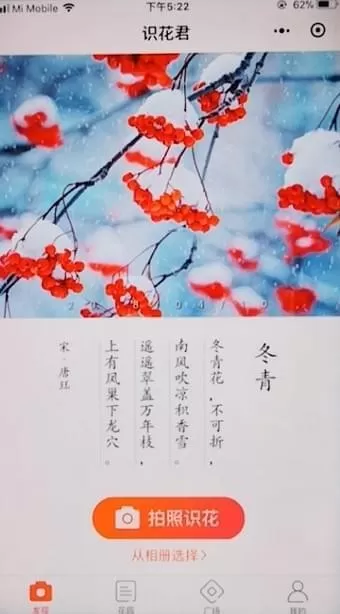 Mi Mobile
下午5:22
62%
识花君
2018/04/19
冬青
冬青花，不可折，
南风吹凉积香雪。
遥遥翠盖万年枝，
上有凤巢下龙穴。
宋·唐珏
拍照识花
从相册选择>
发现
花圃
广场
我的